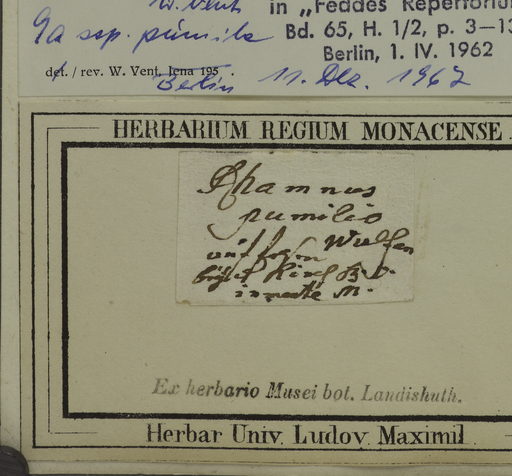 W. Vent in „Feddes Repertorium
9a ssp. pumila Bd. 65, H. 1/2, p. 3—13
Berlin, 1. IV. 1962
det. / rev. W. Vent, Jena 195 .
Berlin 11. Dez. 1967
HERBARIUM REGIUM MONACENSE
Rhamnus
pumilio
Wulfen
M.
Ex herbario Musei bot. Landishuth.
Herbar Univ. Ludov. Maximil